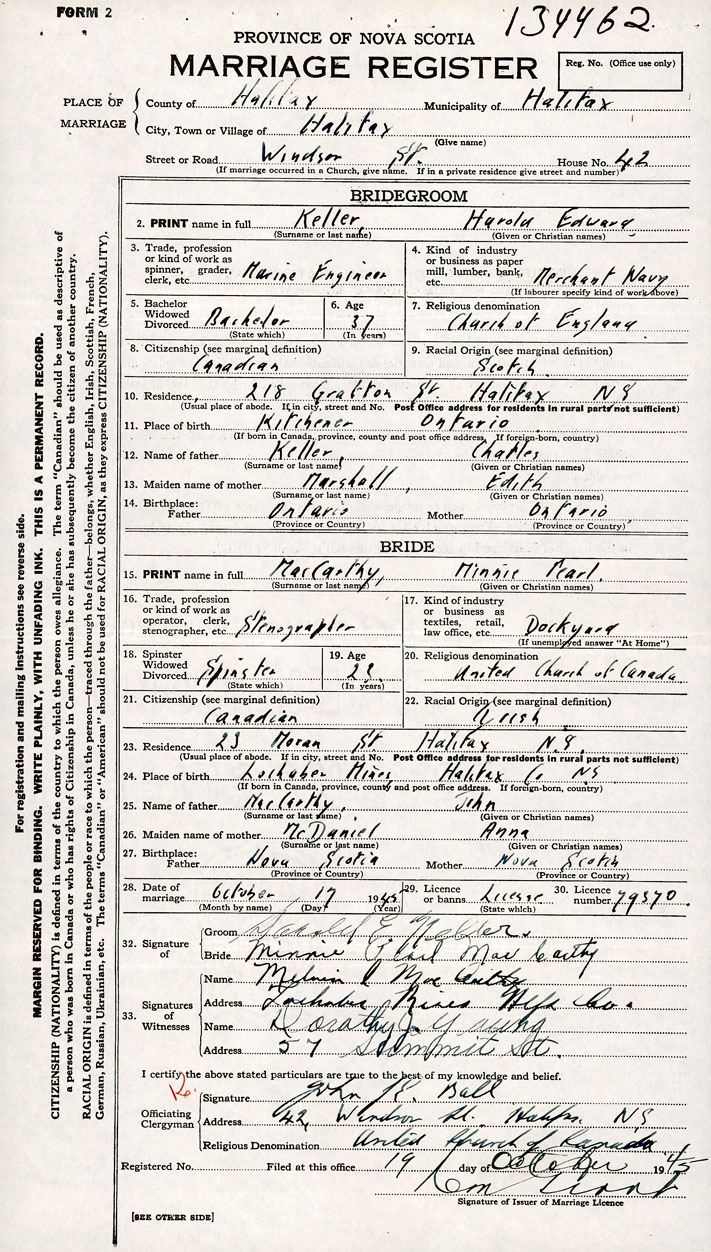 FORM 2
134462
PROVINCE OF NOVA SCOTIA
MARRIAGE REGISTER
Reg. No. (Office use only)
PLACE OF MARRIAGE
County of Halifax Municipality of Halifax
City, Town or Village of Halifax
(Give name)
Street or Road Windsor St. House No. 42
(If marriage occurred in a Church, give name. If in a private residence give street and number)
BRIDEGROOM
2. PRINT name in full Keller, Harold Edward
(Surname or last name) (Given or Christian names)
3. Trade, profession or kind of work as spinner, grader, clerk, etc. Marine Engineer
4. Kind of industry or business as paper mill, lumber, bank, etc. Merchant Navy
(If labourer specify kind of work above)
5. Bachelor Widowed Divorced Bachelor
(State which)
6. Age 37
(In years)
7. Religious denomination
Church of England
8. Citizenship (see marginal definition)
Canadian
9. Racial Origin (see marginal definition)
Scotch
10. Residence 218 St. Halifax NS
(Usual place of abode. If in city, street and No. Post Office address for residents in rural parts not sufficient)
11. Place of birth Kitchener Ontario
(If born in Canada, province, county and post office address. If foreign-born, country)
12. Name of father Keller, Charles
(Surname or last name) (Given or Christian names)
13. Maiden name of mother Marshall, Edith
(Surname or last name) (Given or Christian names)
14. Birthplace:
Father Ontario Mother Ontario
(Province or Country) (Province or Country)
BRIDE
15. PRINT name in full MacCarthy, Minnie Pearl.
(Surname or last name) (Given or Christian names)
16. Trade, profession or kind of work as operator, clerk, stenographer, etc. Stenographer
17. Kind of industry or business as textiles, retail, law office, etc. Dockyard
(If unemployed answer "At Home")
18. Spinster Widowed Divorced Spinster
(State which)
19. Age 23
(In years)
20. Religious denomination
United Church of Canada
21. Citizenship (see marginal definition)
Canadian
22. Racial Origin (see marginal definition)
Irish
23. Residence 23 Moran St Halifax N.S.
(Usual place of abode. If in city, street and No. Post Office address for residents in rural parts not sufficient)
24. Place of birth Lochaber Mines, Halifax Co NS
(If born in Canada, province, county and post office address. If foreign-born, country)
25. Name of father MacCarthy, John
(Surname or last name) (Given or Christian names)
26. Maiden name of mother McDaniel Anna
(Surname or last name) (Given or Christian names)
27. Birthplace:
Father Nova Scotia Mother Nova Scotia
(Province or Country) (Province or Country)
28. Date of marriage October 17 1945
(Month by name) (Day) (Year)
29. Licence or banns License
(State which)
30. Licence number 79370.
32. Signature of
Groom Harold E Keller.
Bride Minnie Pearl MacCarthy
33. Signatures of Witnesses
Name Melvin MacCarthy
Address Lochaber Mines Hfx Co.
Name Dorothy J. Young
Address 57 Summit St.
I certify the above stated particulars are true to the best of my knowledge and belief.
Officiating Clergyman
Signature John Ball
Address 42, Windsor St. Halifax. NS
Religious Denomination United Church of Canada
Registered No. Filed at this office 19 day of October 1945
Signature of Issuer of Marriage Licence
[SEE OTHER SIDE]
For registration and mailing instructions see reverse side.
MARGIN RESERVED FOR BINDING. WRITE PLAINLY, WITH UNFADING INK. THIS IS A PERMANENT RECORD.
CITIZENSHIP (NATIONALITY) is defined in terms of the country to which the person owes allegiance. The term "Canadian" should be used as descriptive of
a person who was born in Canada or who has rights of Citizenship in Canada, unless he or she has subsequently become the citizen of another country.
RACIAL ORIGIN is defined in terms of the people or race to which the person—traced through the father—belongs, whether English, Irish, Scottish, French,
German, Russian, Ukrainian, etc. The terms "Canadian" or "American" should not be used for RACIAL ORIGIN, as they express CITIZENSHIP (NATIONALITY).